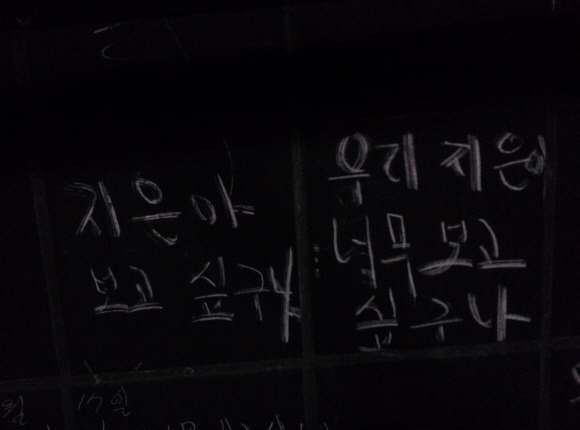 지은아
보고 싶구나
우리 지은이
너무 보고
싶구나
월 17일